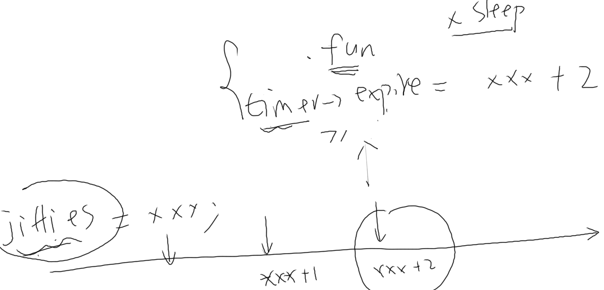 x sleep
.fun
timer-> expire = xxx + 2
jiffies = xxx;
xxx+1
xxx+2